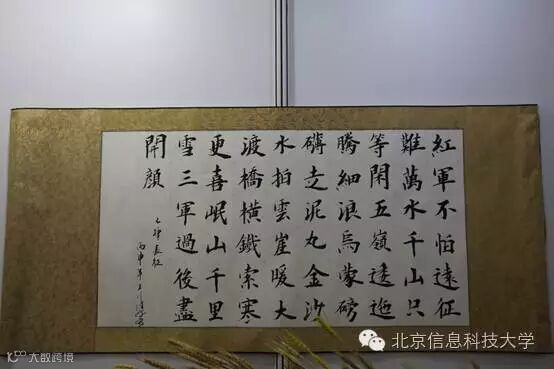 紅軍不怕遠征
難萬水千山只
等閑五嶺逶迤
騰細浪烏蒙磅
礴走泥丸金沙
水拍雲崖暖大
渡橋橫鐵索寒
更喜岷山千里
雪三軍過後盡
開顏
七律長征
丙申年
北京信息科技大学
大数跨境